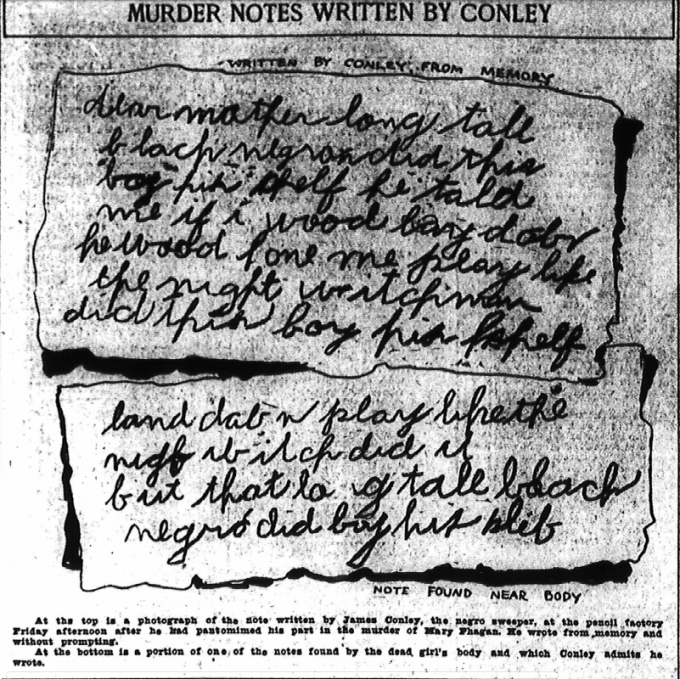 MURDER NOTES WRITTEN BY CONLEY
WRITTEN BY CONLEY FROM MEMORY
dear mather long tall
black negron did this
boy his shelf he tald
me if i wood lay dobr
he wood lone me play like
the night witchman
did this boy his shelf
land dab n play like the
night witch did it
but that long tall blach
negro did boy his sleb
NOTE FOUND NEAR BODY
At the top is a photograph of the note written by James Conley, the negro sweeper, at the pencil factory
Friday afternoon after he had pantomimed his part in the murder of Mary Phagan. He wrote from memory and
without prompting.
At the bottom is a portion of one of the notes found by the dead girl's body and which Conley admits he
wrote.